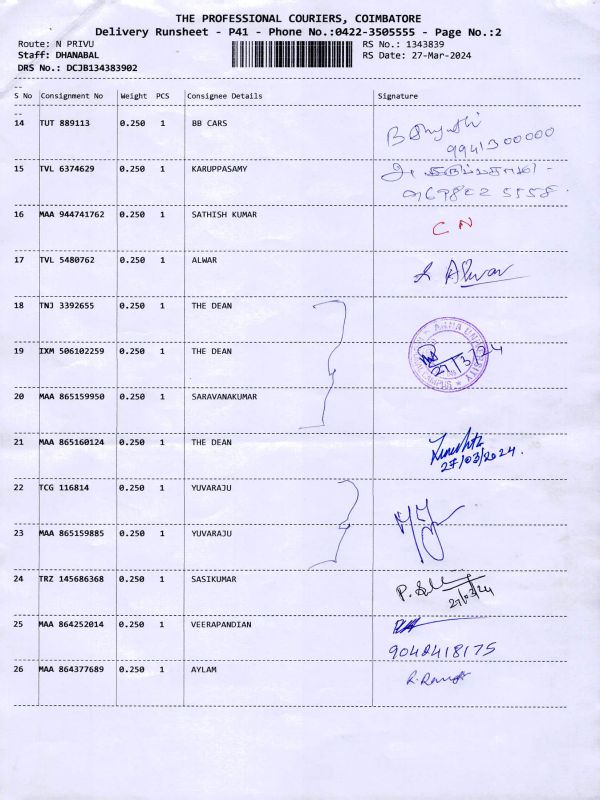 THE PROFESSIONAL COURIERS, COIMBATORE
Delivery Runsheet - P41 - Phone No.:0422-3505555 - Page No.:2
Route: N PRIVU RS No.: 1343839
Staff: DHANABAL RS Date: 27-Mar-2024
DRS No.: DCJB134383902
S No Consignment No Weight PCS Consignee Details Signature
14 TUT 889113 0.250 1 BB CARS
15 TVL 6374629 0.250 1 KARUPPASAMY
16 MAA 944741762 0.250 1 SATHISH KUMAR CN
17 TVL 5480762 0.250 1 ALWAR Alwar
18 TNJ 3392655 0.250 1 THE DEAN
19 IXM 506102259 0.250 1 THE DEAN 27/3/24
20 MAA 865159950 0.250 1 SARAVANAKUMAR
21 MAA 865160124 0.250 1 THE DEAN
27/03/2024.
22 TCG 116814 0.250 1 YUVARAJU
23 MAA 865159885 0.250 1 YUVARAJU
24 TRZ 145686368 0.250 1 SASIKUMAR
27/03/24
25 MAA 864252014 0.250 1 VEERAPANDIAN
9042418175
26 MAA 864377689 0.250 1 AYLAM